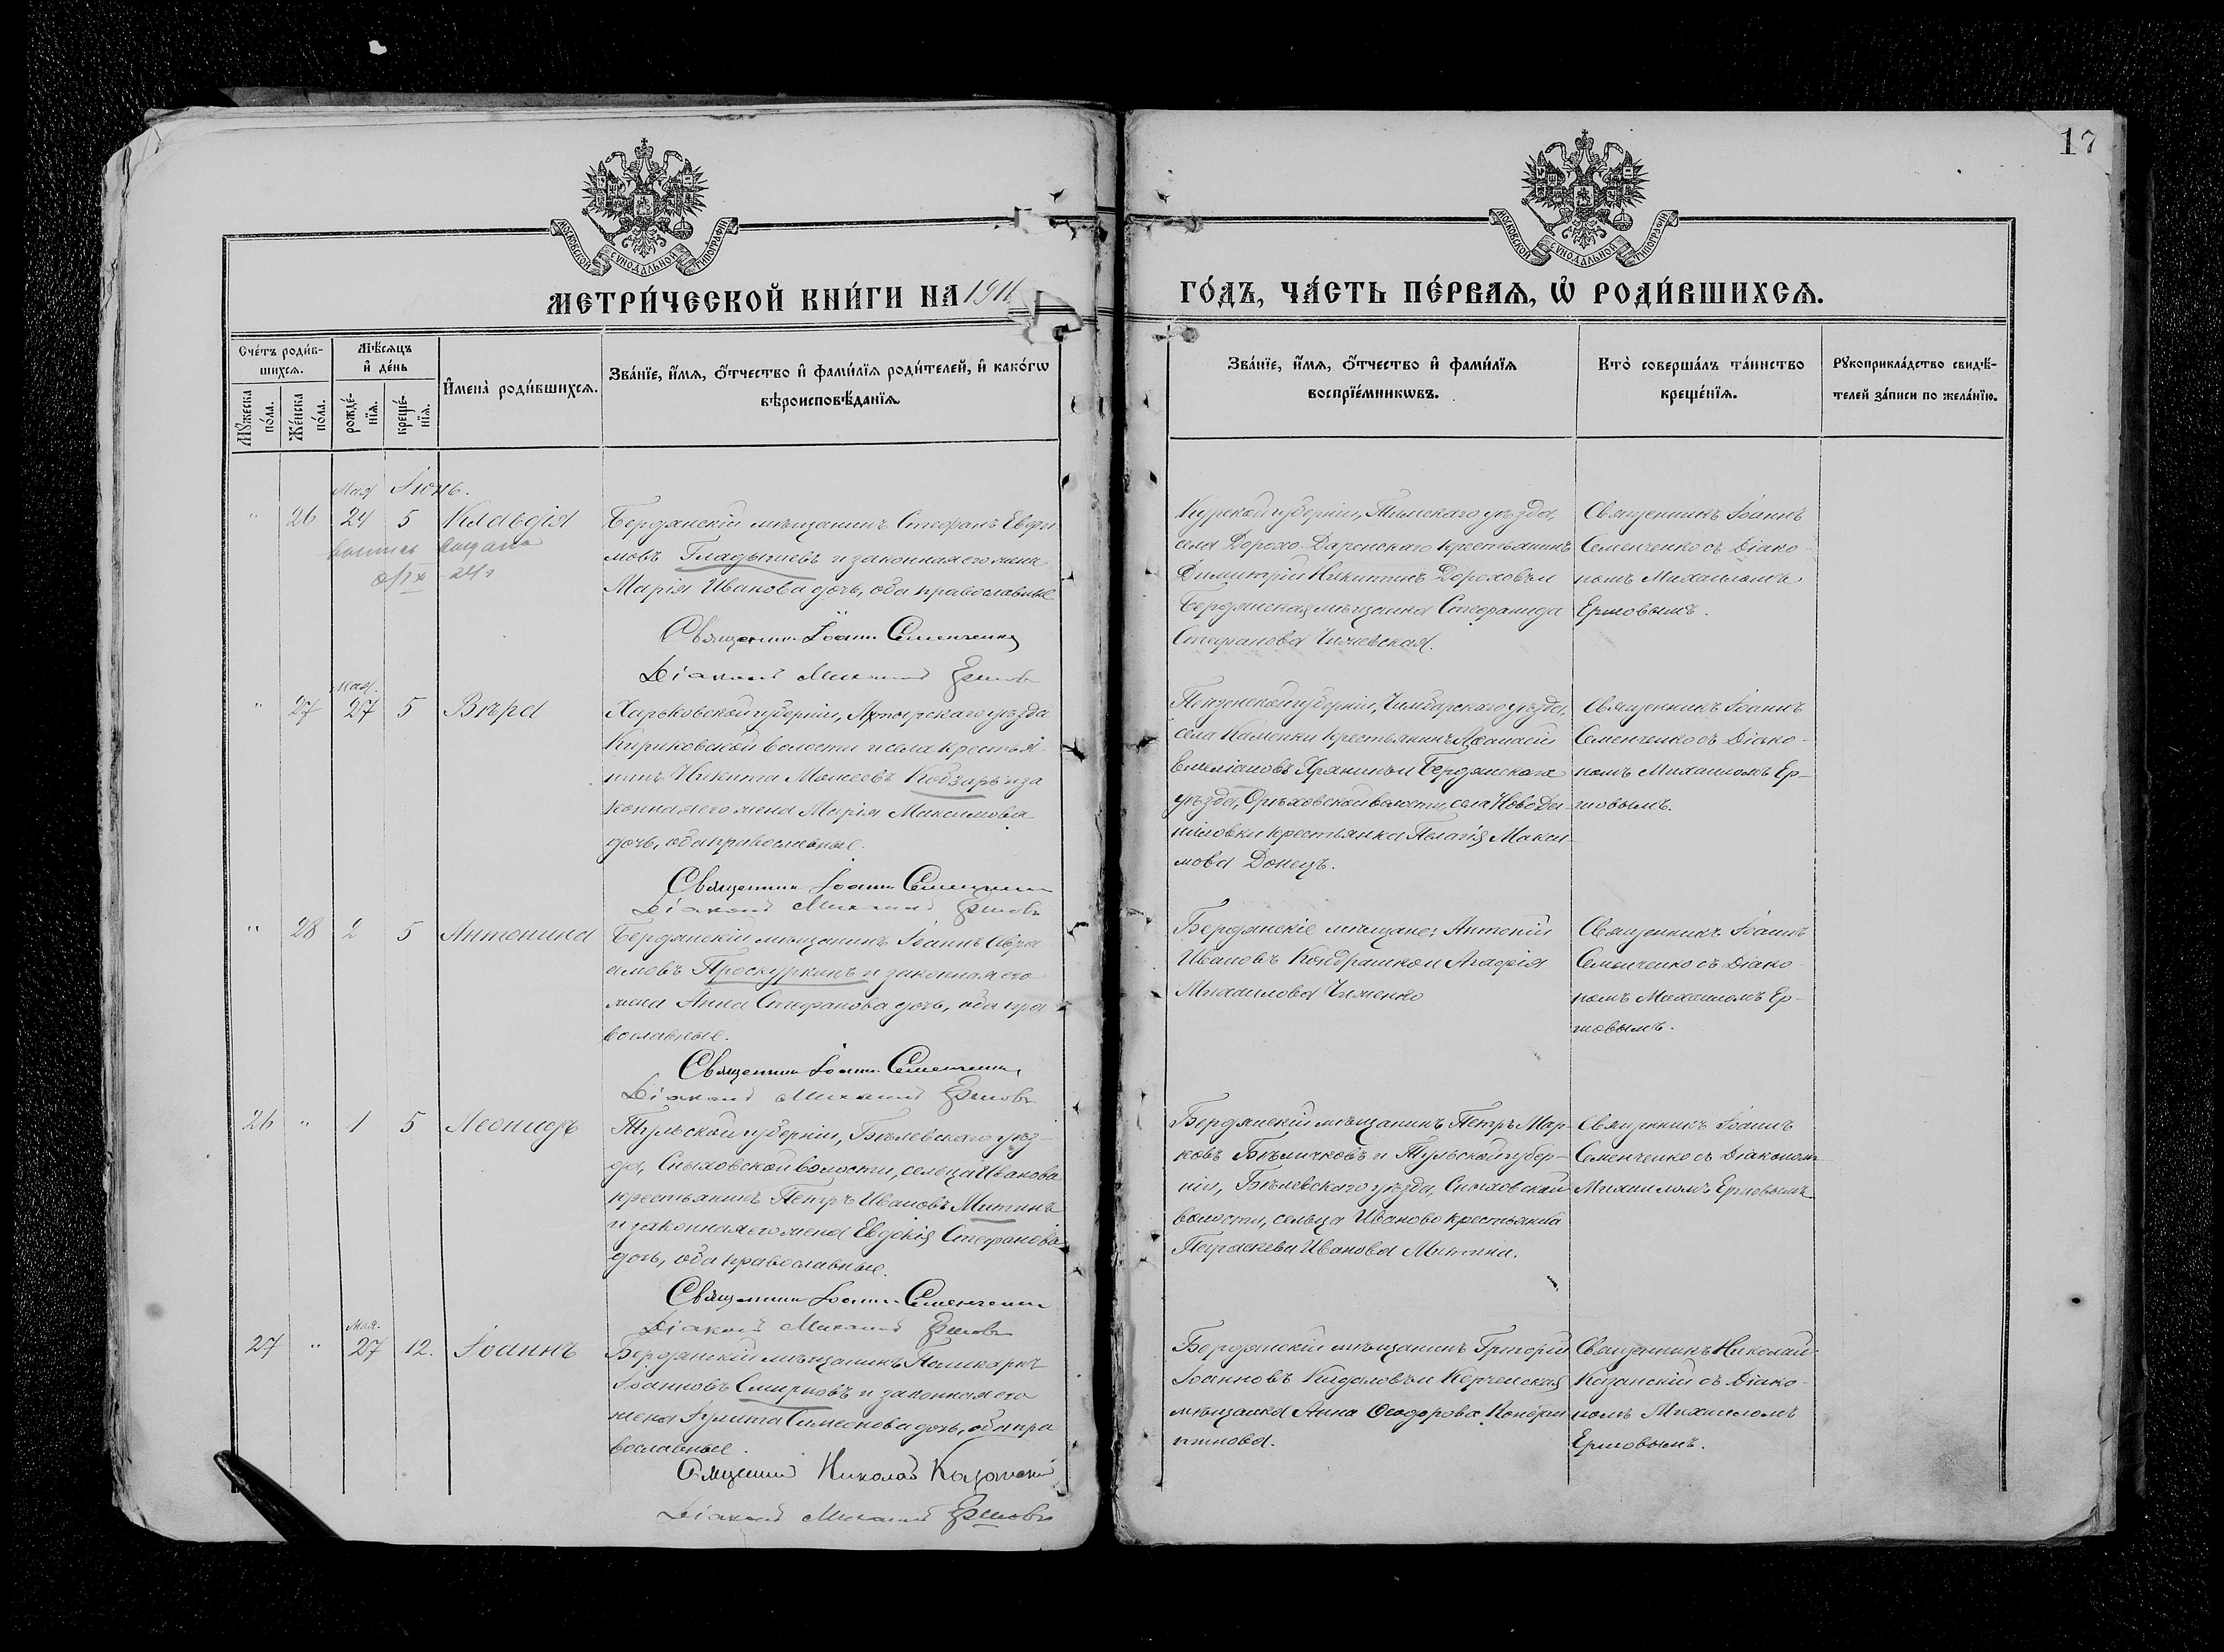 17
МОСКОВСКОЙ СѴНОДАЛЬНОЙ ТИПОГРАФІИ
МОСКОВСКОЙ СѴНОДАЛЬНОЙ ТИПОГРАФІИ
МЕТРИ́ЧЕСКОЙ КНИ́ГИ НА 1911
ГО́ДЪ, ЧА́СТЬ ПЕ́РВАѦ, Ѡ҆ РОДИ́ВШИХСѦ.
Сче́тъ роди́в-
шихсѧ.
Мꙋ́жеска по́ла.
Же́нска по́ла.
Мѣ́сѧцъ
и҆ де́нь
рожде́-нїѧ.
креще́-нїѧ.
И҆мена̀ роди́вшихсѧ.
Зва́нїе, и҆́мѧ, ѻ҆́тчество и҆ фами́лїѧ роди́телей, и҆ како́гѡ
вѣроисповѣ́данїѧ.
Зва́нїе, и҆́мѧ, ѻ҆́тчество и҆ фами́лїѧ
воспрїе́мникѡвъ.
Кто̀ соверша́лъ та́инство
креще́нїѧ.
Рꙋкоприкла́дство свидѣ́-
телей за́писи по жела́нїю.
Мая Іюнь.
" 26 24 5 Клавдія
Бердянскій мѣщанинъ Стефанъ Евфи
мовъ Гладышевъ и законная его жена
Марія Иванова дочь, оба православные
Священникъ Іоаннъ Семенченко
Діаконъ Михаилъ Ершовъ
Курской губерніи, Тимскаго уѣзда,
села крестьянинъ
Димитрій Никитинъ Дороховъ и
Бердянская мѣщанка Стефанида
Стефанова
Священникъ Іоаннъ
Семенченко съ Діако-
номъ Михаиломъ
Ершовымъ.
Мая.
" 27 27 5 Вѣра
Харьковской губерніи, Ахтырскаго уѣзда
Кириковской волости и села крестья-
нинъ Никита Моисеевъ Кобзарь и за
конная его жена Марія Максимова
дочь, оба православные.
Священникъ Іоаннъ Семенченко
Діаконъ Михаилъ Ершовъ
Пензенской губерніи, Чембарскаго уѣзда,
села Каменки крестьянинъ Аѳанасій
Емеліановъ и Бердянскаго
уѣзда, Орѣховской волости, села Ново Да
ниловки крестьянка Пелагія Макси
мова Донецъ.
Священникъ Іоаннъ
Семенченко съ Діако-
номъ Михаиломъ Ер-
шовымъ.
" 28 2 5 Антонина
Бердянскій мѣщанинъ Іоаннъ Авра
амовъ Проскуркинъ и законная его
жена Анна Стефанова дочь, оба пра
вославные.
Священникъ Іоаннъ Семенченко
Діаконъ Михаилъ Ершовъ
Бердянскіе мѣщане: Антоній
Ивановъ и Агафія
Михаилова
Священникъ Іоаннъ
Семенченко съ Діако-
номъ Михаиломъ Ер-
шовымъ.
26 " 1 5 Леонидъ
Тульской губерніи, Бѣлевскаго уѣз-
да, Сныховской волости, сельца Иванова
крестьянинъ Петръ Ивановъ Митинъ
и законная его жена Евдокія Стефанова
дочь, оба православные.
Священникъ Іоаннъ Семенченко
Діаконъ Михаилъ Ершовъ
Бердянскій мѣщанинъ Петръ Мар-
ковъ Бѣличковъ и Тульской губер-
ніи, Бѣлевскаго уѣзда, Сныховской
волости, сельца Иваново крестьянка
Параскева Иванова Митина.
Священникъ Іоаннъ
Семенченко съ Діакономъ
Михаиломъ Ершовымъ
Мая.
27 " 27 12. Іоаннъ
Бердянскій мѣщанинъ Поликарпъ
Іоанновъ Смирновъ и законная его
жена Іулита Симеонова дочь, оба пра
вославные.
Священникъ Николай Казанскій
Діаконъ Михаилъ Ершовъ
Бердянскій мѣщанинъ Григорій
Іоанновъ и Керченская
мѣщанка Анна Ѳеодорова
Священникъ Николай
Казанскій съ Діако-
номъ Михаиломъ
Ершовымъ.